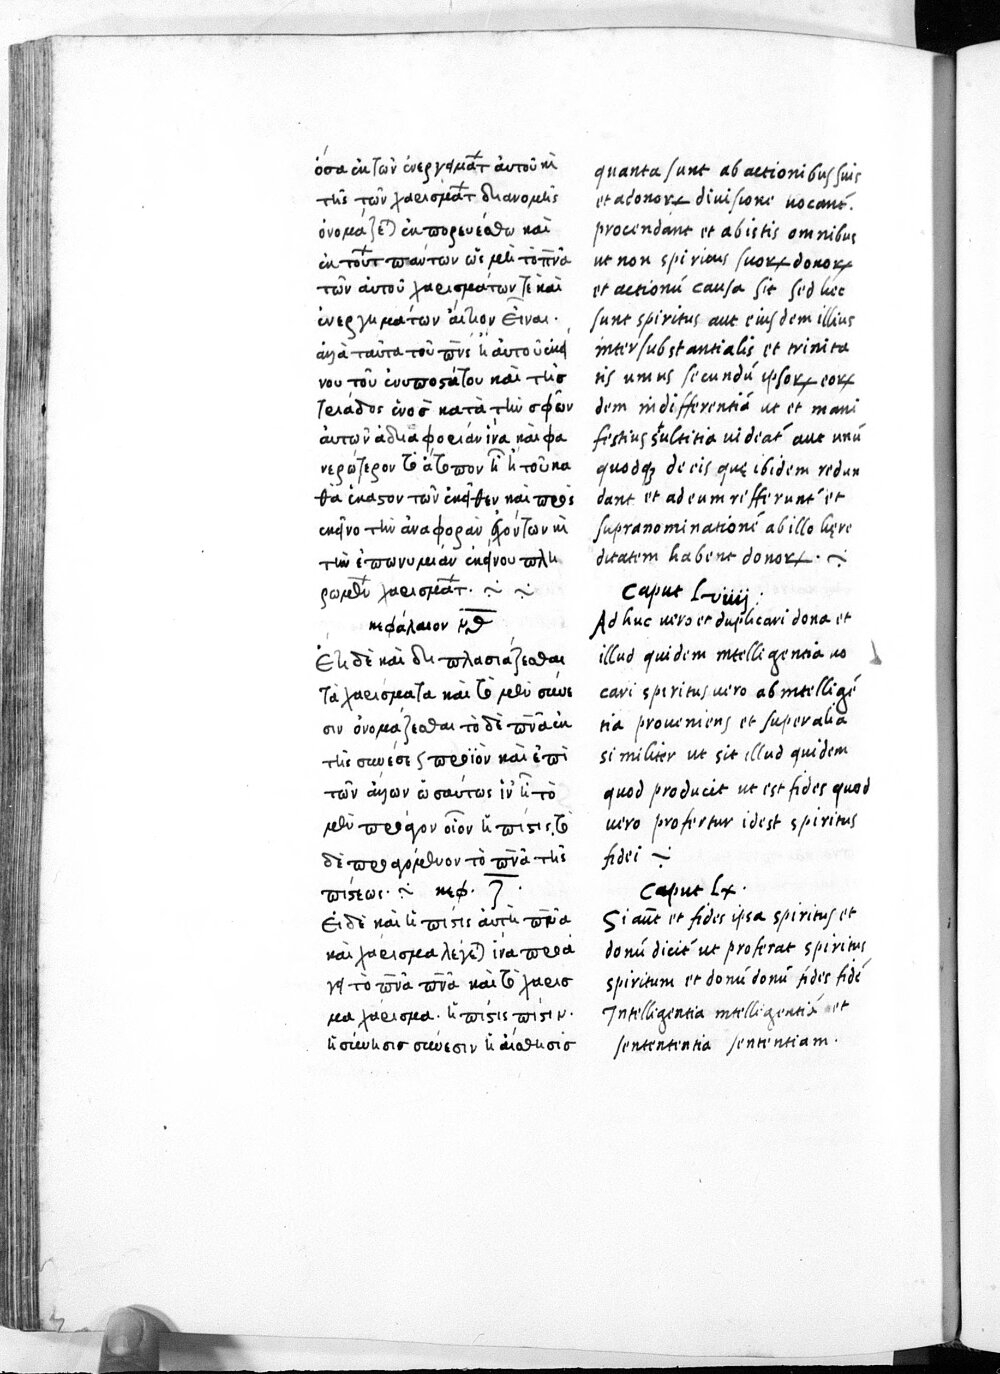 ὅσα ἐκ τῶν ἐνεργημάτ αὐτοῦ κὶ
τῆς τῶν χαρισμάτ διανομῆς
ὀνομάζετ ἐκπορευέσθω καὶ
ἐκ τούτ πάντων ὡς μὴ τὸ πνα
τῶν αὐτοῦ χαρισμάτων τὲ καὶ
ἐνεργημάτων αἴτιον εἶναι.
ἀλλὰ ταῦτα τοῦ πνς ἢ αὐτοῦ ἐκεί
νου τοῦ ἐνυποστάτου καὶ τῆς
τριάδος ἑνὸς κατὰ τὴν σφῶν
αὐτῶν ἀδιαφορίαν ἵνα καὶ φα
νερώτερον τὸ ἄτοπον ᾖ ἢ τοῦ κα
θὰ ἕκαστον τῶν ἐκεῖθεν καὶ πρὸς
ἐκεῖνο τὴν ἀναφορὰν ἐχόντων κὶ
τὴν ἐπωνυμίαν ἐκείνου πλη
ρωμεν χαρισμάτ.
κεφάλαιον νθ
Ἔτι δὲ καὶ διπλασιάζεσθαι
τὰ χαρίσματα καὶ τὸ μεν σύνε
σιν ὀνομάζεσθαι τὸ δὲ πνα ἐκ
τῆς συνέσεως προϊὸν καὶ ἐπὶ
τῶν ἄλλων ὡσαύτως ἵν ᾖ τὸ
μεν προάγον οἷον ἡ πίστις, τὸ
δὲ προαγόμενον τὸ πνα τῆς
πίστεως. κεφ. ξ.
Εἰ δὲ καὶ ἡ πίστις αὐτὴ πνα
καὶ χάρισμα λέγετ ἵνα προά
γῃ τὸ πνα πνα καὶ τὸ χάρισ
μα χάρισμα. ἡ πίστις πίστιν.
ἡ σύνεσις σύνεσιν ἡ αἴσθησις
quanta sunt ab actionibus suis
et a donorx divisione vocant.
procendant et ab istis omnibus
ut non spiritus suorx donorx
et actionū causa sit sed hec
sunt spiritus aut eiusdem illius
intersubstantialis et trinita
tis unus secundū ipsorx eorx
dem indifferentiā ut et mani
festius stultitia videat aut unū
quodq de eis quę ibidem redun
dant et ad eum refferunt et
supranominationē ab illo hęre
ditatem habent donorx.
Caput Lviiij.
Adhuc vero et duplicari dona et
illud quidem intelligentia vo
cari spiritus vero ab intelligē
tia proveniens et super alia
similiter ut sit illud quidem
quod producit ut est fides quod
vero profertur idest spiritus
fidei
Caput Lx.
Si aūt et fides ipsa spiritus et
donū dicit ut proferat spiritus
spiritum et donū donū fides fidē
Intelligentia intelligentiā et
sentententia sententiam.